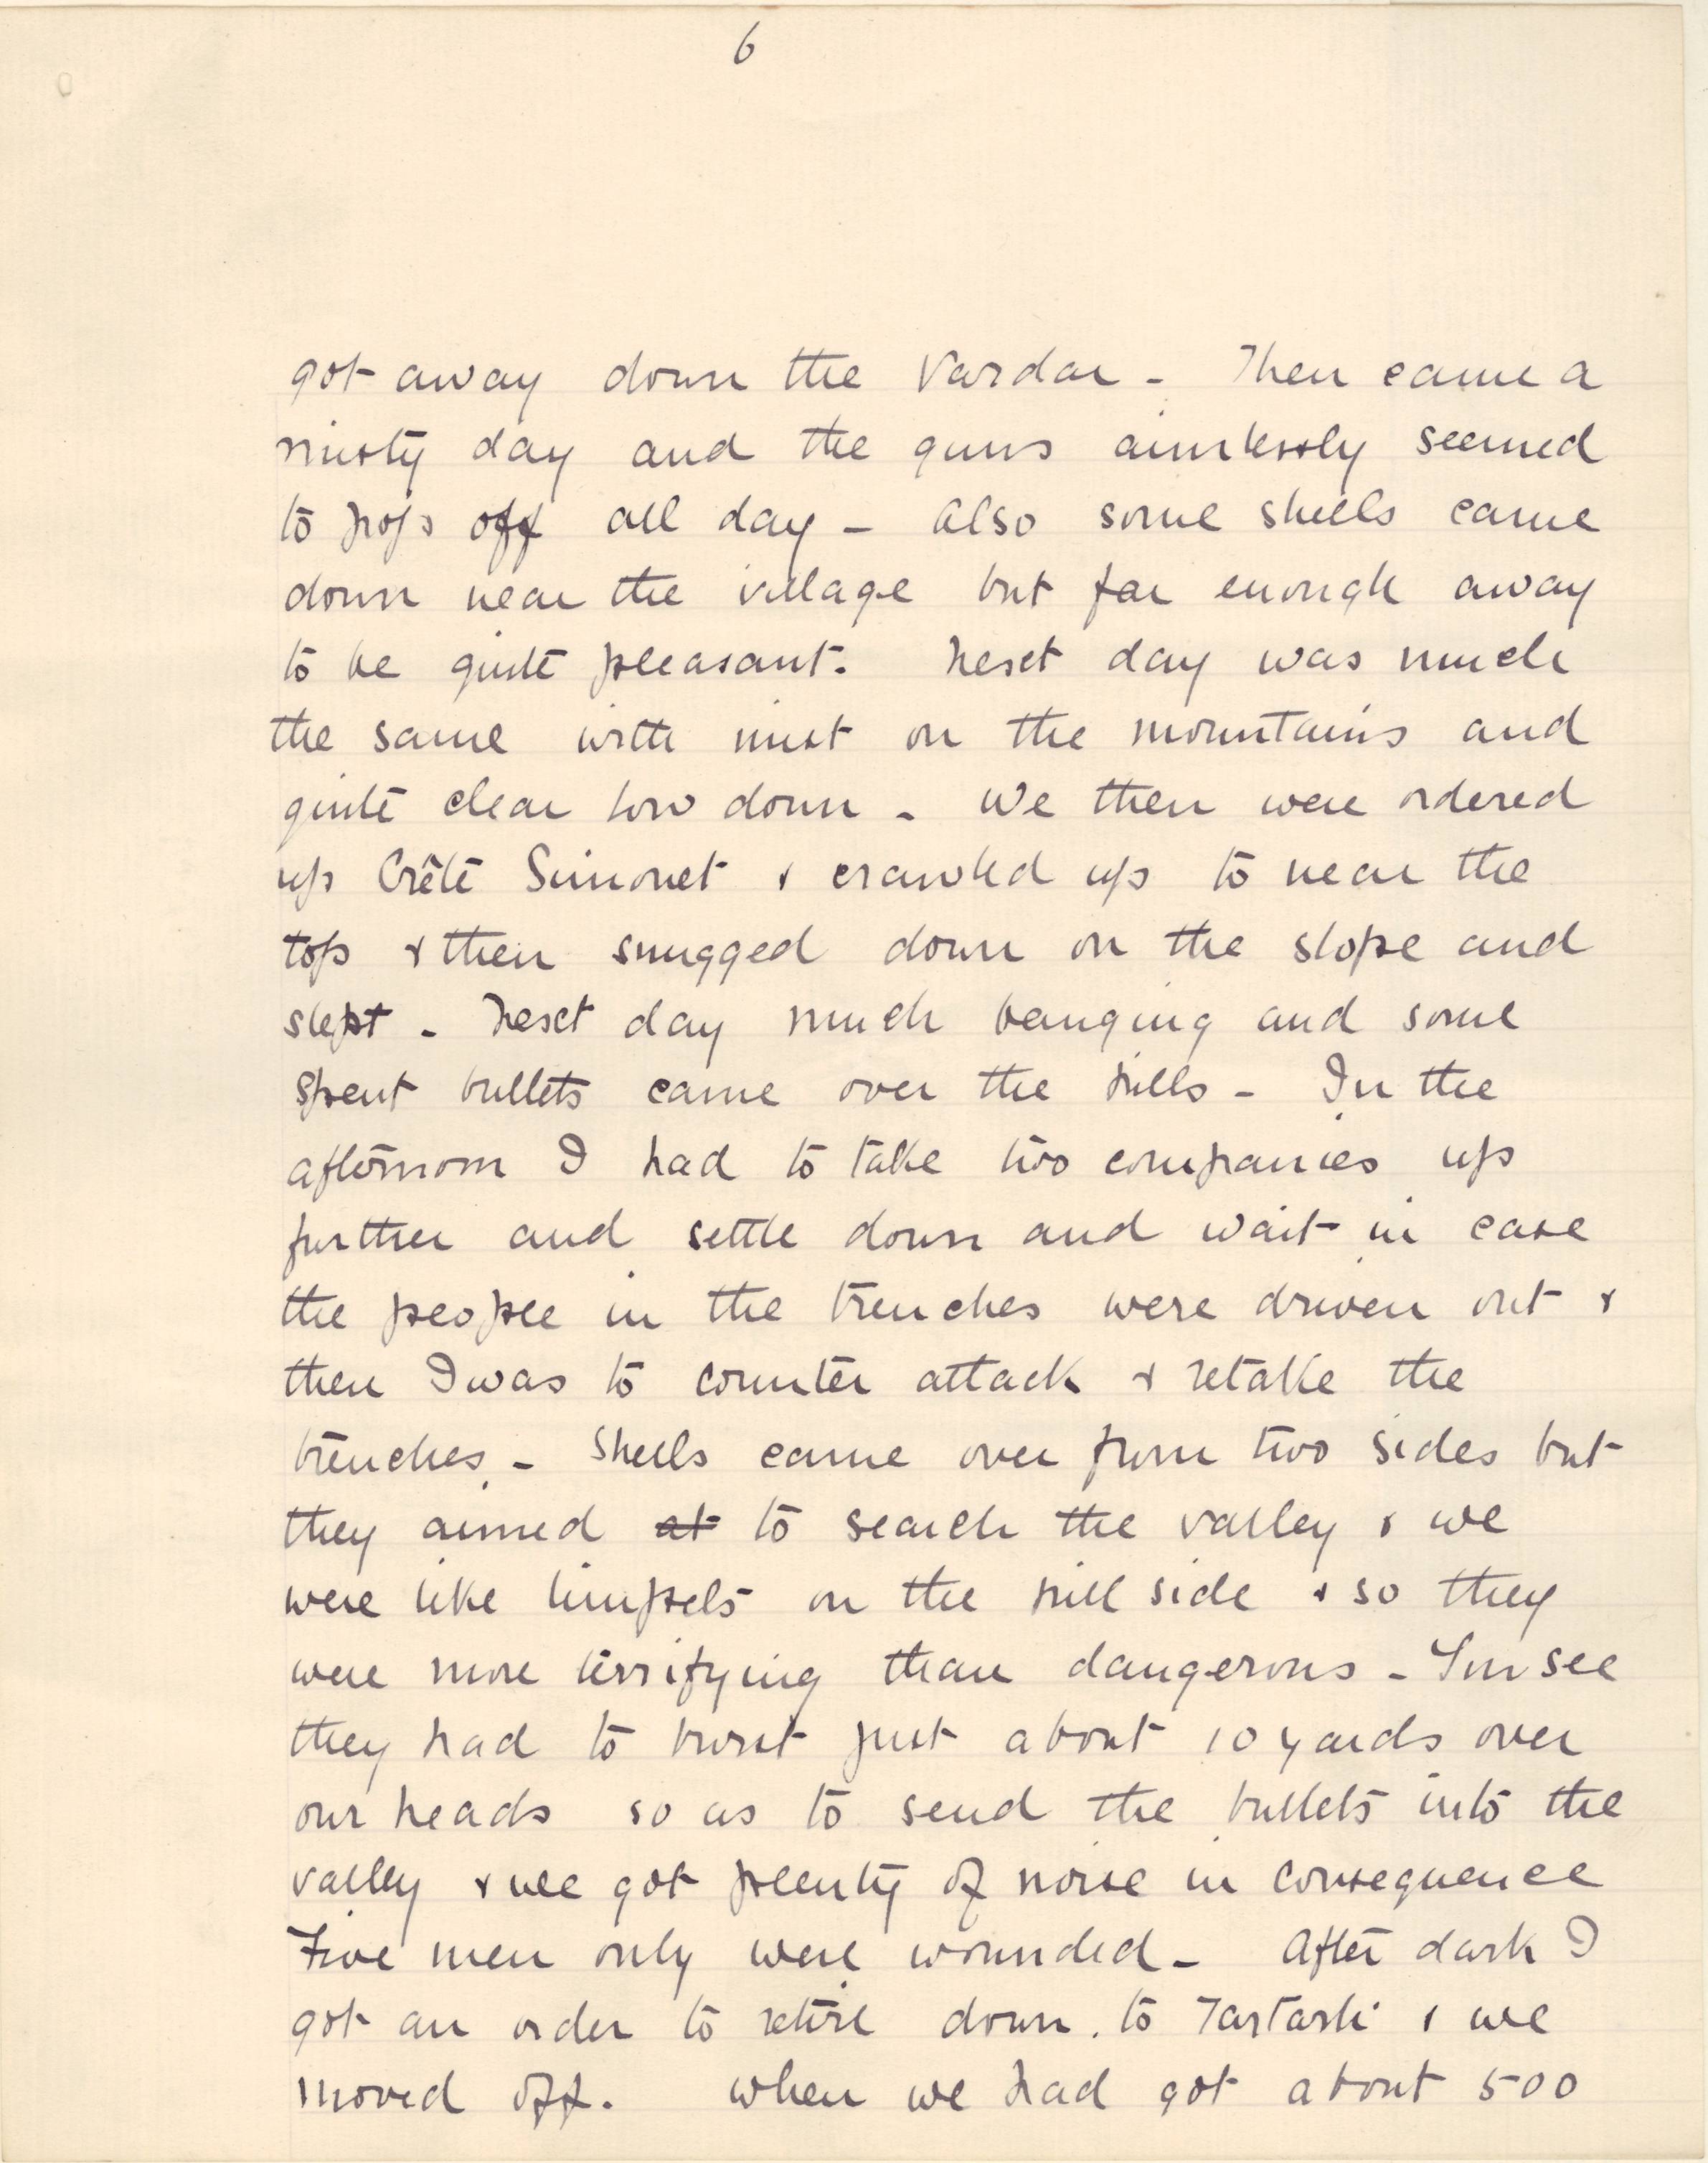 6
got away down the Vardar - Then came a
misty day and the guns aimlessly seemed
to pop off all day - Also some shells came
down near the village but far enough away
to be quite pleasant. Next day was much
the same with mist on the mountains and
quite clear low down - We then were ordered
up Crête Simonet & crawled up to near the
top & then snugged down on the slope and
slept - Next day much banging and some
spent bullets came over the hills - In the
afternoon I had to take two companies up
further and settle down and wait in case
the people in the trenches were driven out &
then I was to counter attack & retake the
trenches - Shells came over from two sides but
they aimed at to search the valley & we
were like limpets on the hill side & so they
were more terrifying than dangerous - You see
they had to burst just about 10 yards over
our heads so as to send the bullets into the
valley & we got plenty of noise in consequence
Five men only were wounded - After dark I
got an order to retire down. to Tartarli & we
moved off. When we had got about 500